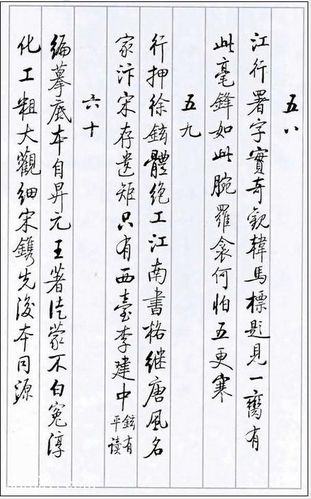 五八
江行署字實奇觀韓馬標題見一臠有
此毫鋒如此腕羅衾何怕五更寒
五九
行押徐鉉體絕工江南書格繼唐風名
家汴宋存遺矩只有西臺李建中鉉有平讀
六十
編摹底本自昇元王著徒蒙不白冤淳
化工粗大觀細宋鐫先後本同源